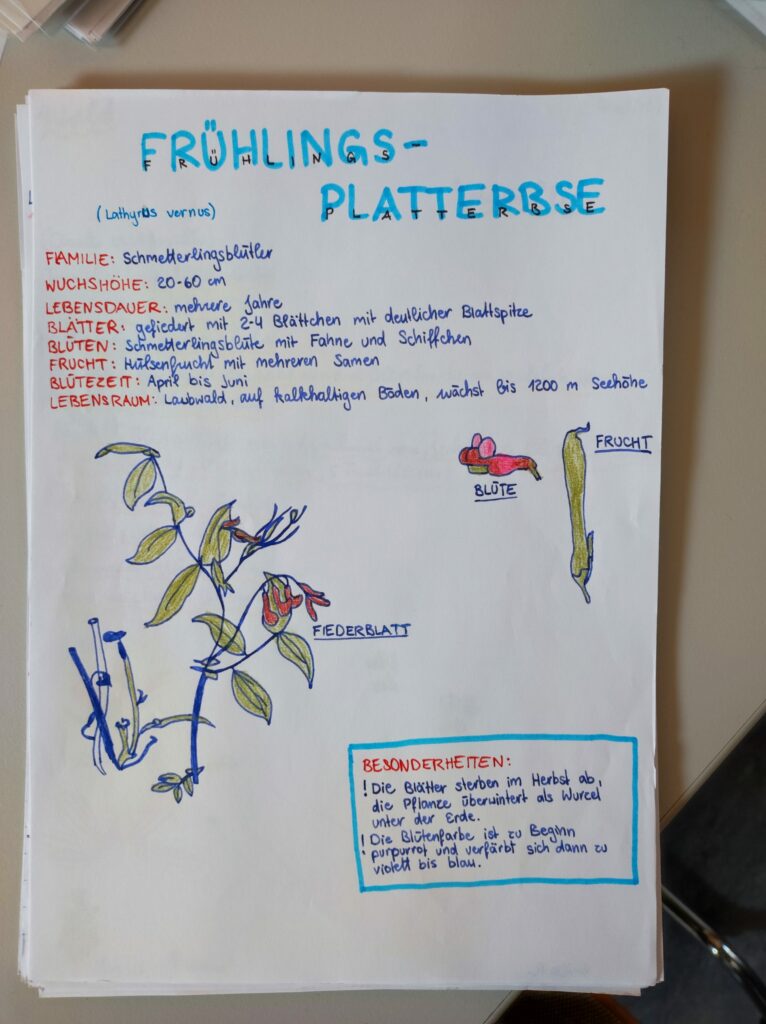 FRÜHLINGS-
FRÜHLINGS
PLATTERBSE
PLATTERBSE
(Lathyrus vernus)
FAMILIE: Schmetterlingsblütler
WUCHSHÖHE: 20-60 cm
LEBENSDAUER: mehrere Jahre
BLÄTTER: gefiedert mit 2-4 Blättchen mit deutlicher Blattspitze
BLÜTEN: Schmetterlingsblüte mit Fahne und Schiffchen
FRUCHT: Hülsenfrucht mit mehreren Samen
BLÜTEZEIT: April bis Juni
LEBENSRAUM: Laubwald, auf kalkhaltigen Böden, wächst bis 1200 m Seehöhe
FRUCHT
BLÜTE
FIEDERBLATT
BESONDERHEITEN:
! Die Blätter sterben im Herbst ab,
die Pflanze überwintert als Wurzel
unter der Erde.
! Die Blütenfarbe ist zu Beginn
purpurrot und verfärbt sich dann zu
violett bis blau.